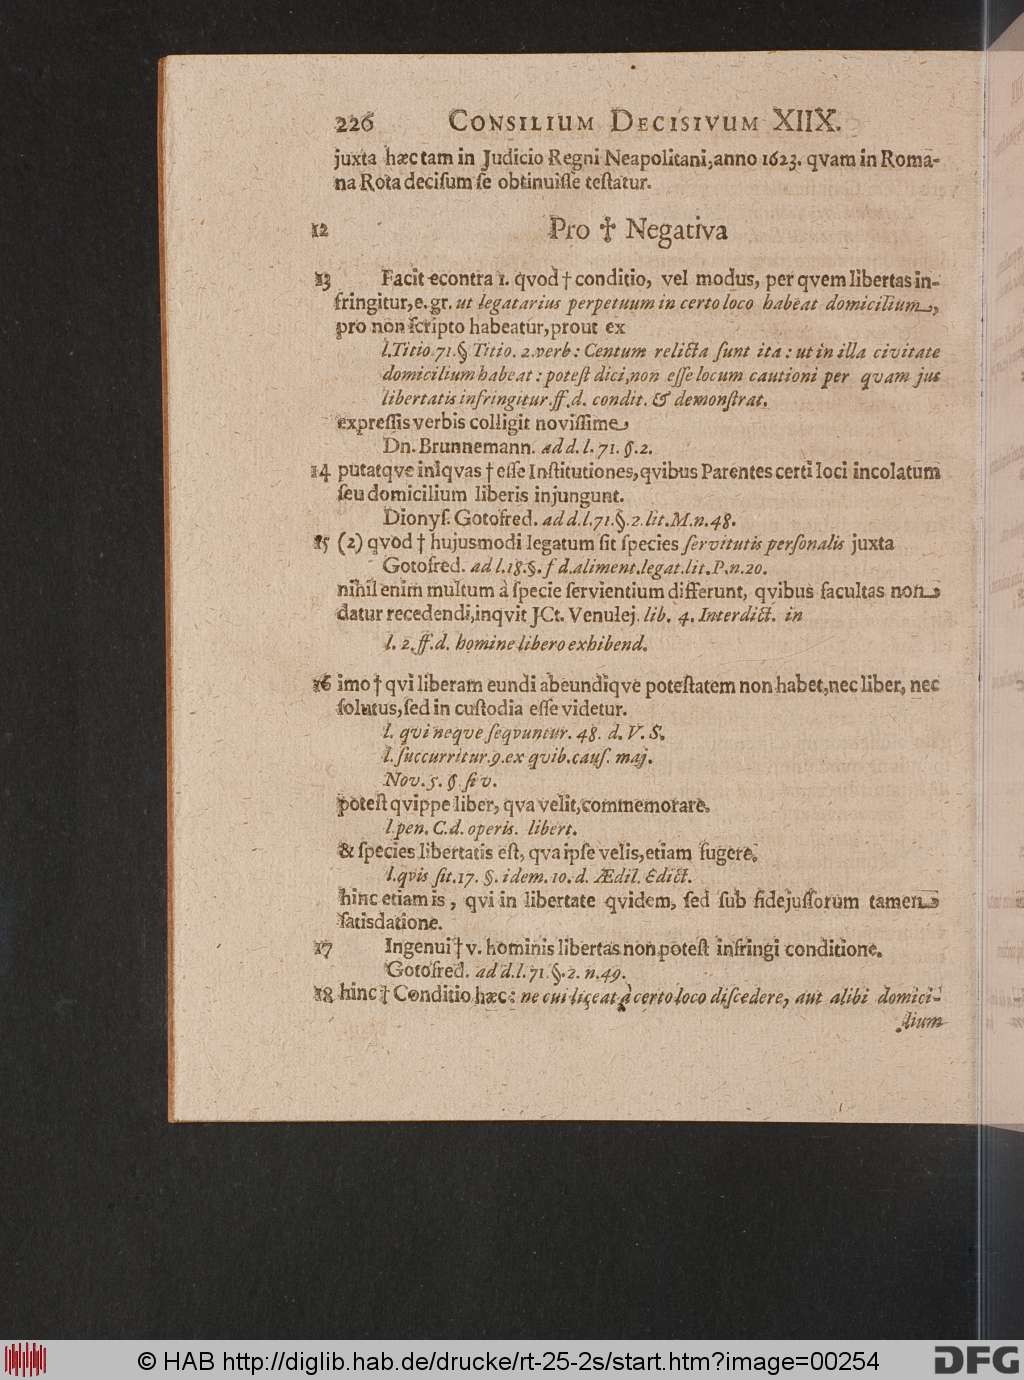 226 CONSILIUM DECISIVUM XIIX.
juxta hæc tam in Judicio Regni Neapolitani, anno 1623. qvam in Roma-
na Rota decisum se obtinuisse testatur.
12 Pro † Negativa
13 Facit econtra 1. qvod † conditio, vel modus, per qvem libertas in-
fringitur, e. gr. ut legatarius perpetuum in certo loco habeat domicilium,
pro non scripto habeatur, prout ex
l. Titio. 71. § Titio. 2. verb: Centum relicta sunt ita: ut in illa civitate
domicilium habeat: potest dici, non esse locum cautioni per quam jus
libertatis infringitur. ff. d. condit. & demonstrat.
expressis verbis colligit novissime
Dn. Brunnemann. ad d. l. 71. §. 2.
14 putatqve iniqvas † esse Institutiones, qvibus Parentes certi loci incolatum
seu domicilium liberis injungunt.
Dionys. Gotofred. ad d. l. 71. §. 2. lit. M. n. 48.
15 (2) qvod † hujusmodi legatum sit species servitutis personalis juxta
Gotofred. ad l. 18. §. f d. aliment. legat. lit. P. n. 20.
nihil enim multum à specie servientium differunt, qvibus facultas non
datur recedendi, inqvit JCt. Venulej. lib. 4. Interdict. in
l. 2. ff. d. homine libero exhibend.
16 imo † qvi liberam eundi abeundiqve potestatem non habet, nec liber, nec
solutus, sed in custodia esse videtur.
l. qui neque seqvuntur. 48. d. V. S.
l. succurritur. 9. ex quib. caus. maj.
Nov. 5. § si v.
potest qvippe liber, qva velit, commemorare.
l. pen. C. d. operis. libert.
& species libertatis est, qva ipse velis, etiam fugere.
l. qvis sit. 17. §. idem. 10. d. Ædil. Edict.
hinc etiam is, qvi in libertate qvidem, sed sub fidejussorum tamen
satisdatione.
17 Ingenui † v. hominis libertas non potest infringi conditione.
Gotofred. ad d. l. 71. §. 2. n. 49.
18 hinc † Conditio hæc: ne cui liceat à certo loco discedere, aut alibi domici-
lium
© HAB http://diglib.hab.de/drucke/rt-25-2s/start.htm?image=00254
DFG